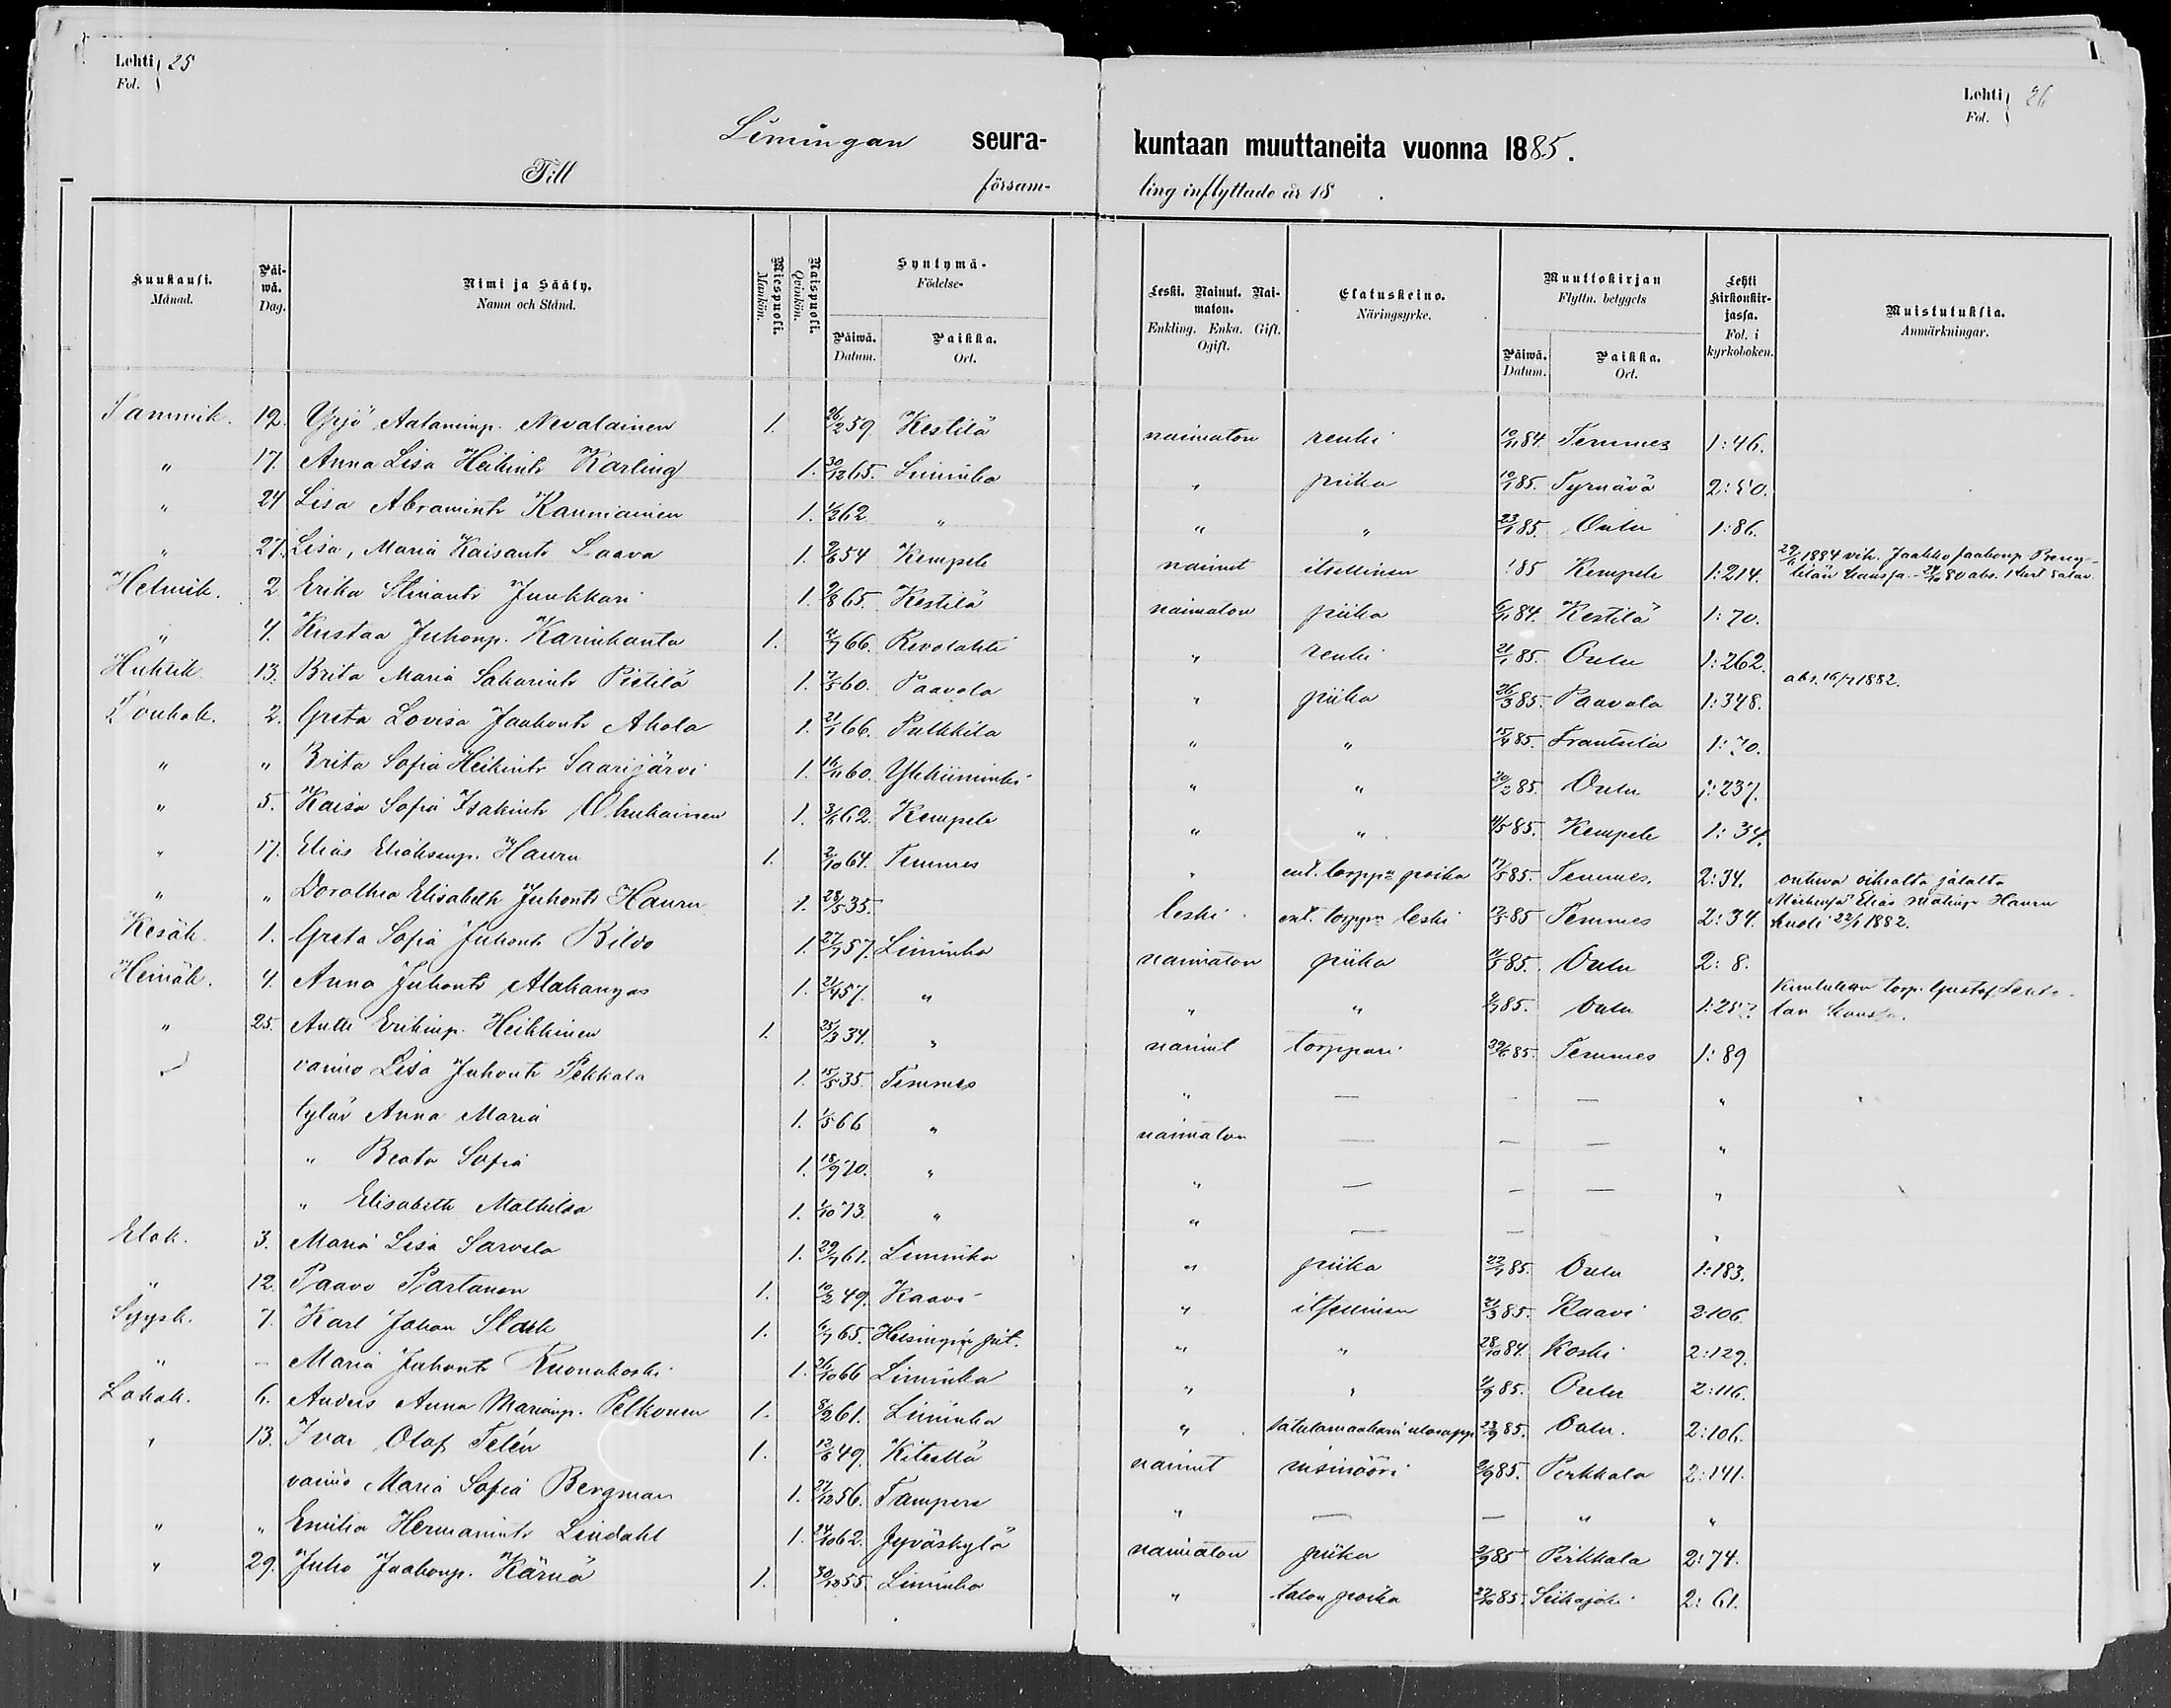 Lehti 25
Fol.
Lehti 26
Fol.
Limingan seura- kuntaan muuttaneita vuonna 1885.
Till församling inflyttade år 18 .
Kuukausi. Päiwä. Nimi ja Sääty. Miespuoli. Naispuoli. Syntymä- Leski. Nainut. Naimaton. Elatuskeino. Muuttokirjan Lehti Kirkonkirjassa. Muistutuksia.
Månad. Dag. Namn och Stånd. Mankön. Qvinkön. Födelse- Enkling. Enka. Gift. Ogift. Näringsyrke. Flyttn. betygets Fol. i kyrkoboken. Anmärkningar.
Päiwä. Paikka. Päiwä. Paikka.
Datum. Ort. Datum. Ort.
Tammik. 12. Yrjö Aataminp. Nevalainen 1. 26/2 59. Kestilä naimaton renki 10/11 84. Temmes 1:46.
" 17. Anna Lisa Heikintr Karling 1. 30/12 65. Liminka " piika 10/1 85. Tyrnävä 2:50.
" 24 Lisa Abramintr Kanniainen 1. 62 " " " 23/1 85. Oulu 1:86.
" 27. Lisa, Maria Kaisantr Saava 1. 9/6 54 Kempele nainut itsellinen 85 Kempele 1:214. 1884 vih. Jaakko Jaakonp.
Helmik. 2 Erika Stinantr Junkkari 1. 2/8 65. Kestilä naimaton piika 6/11 84. Kestilä 1:70.
" 4. Kustaa Juhonp. Karinkanta 1. 66. Revolahti " renki 21/1 85. Oulu 1:262.
Huhtik. 13. Brita Maria Sakarintr Pietilä 1. 7/5 60. Paavola " piika 26/3 85. Paavola 1:348. abs. 16/7 1882.
Toukok. 2. Greta Lovisa Jaakontr Ahola 1. 21/1 66. Pulkkila " " 15/4 85. Frantsila 1:70.
" " Brita Sofia Heikintr Saarijärvi 1. 16/11 60. Ylikiiminki " " 20/2 85. Oulu 1:237.
" 5. Kaisa Sofia Isakintr 1. 3/6 62. Kempele " " 4/5 85. Kempele 1:34.
" 17. Elias Eliaksenp. Hauru 1. 2/10 64. Temmes " ent. torpp:n poika 17/5 85. Temmes. 2:34. ontuva oikealta jalalta
" " Dorothea Elisabeth Juhontr Hauru 1. 28/5 35. leski ent. torpp:n leski 17/5 85 Temmes 2:34. Miehensä Elias Matinp Hauru kuoli 22/1 1882.
Kesäk. 1. Greta Sofia Juhontr Bildo 1. 27/7 57. Liminka naimaton piika 85. Oulu 2:8.
Heinäk. 4. Anna Juhontr Alakangas 1. 21/4 57. " " " 85. Oulu Kuulutettu torp. Gustaf
" 25. Antti Erkinp. Heikkinen 1. 25/3 34. " nainut torppari 85. Temmes 1:89
vaimo Lisa Juhontr Pekkala 1. 15/5 35 Temmes " — — — "
tytär Anna Maria 1. 1/5 66 " naimaton — — — "
" Beata Sofia 1. 18/9 70. " " — — — "
" Elisabeth Mathilda 1. 1/10 73. " " — — "
Elok. 3. Maria Lisa Sarvela 1. 29/7 61. Liminka " piika 22/7 85. Oulu 1:183.
" 12. Paavo Partanen 1. 10/2 49. Kaavi " itsellinen 21/3 85. Kaavi 2:106.
Syysk. 7. Karl Johan 1. 6/7 65. Helsingin pit. " " 28/10 84. Koski 2:129.
" — Maria Juhontr Kuonakoski 1. 26/10 66 Liminka " " 85. Oulu 2:116.
Lokak. 6. Anders Anna Marianp. Pelkonen 1. 8/2 61. Liminka " satulamaakarin 23/9 85. Oulu. 2:106.
" 13. Ivar Olof Telén 1. 12/6 49. Kiteeltä nainut insinööri 2/9 85. Pirkkala 2:141.
vaimo Maria Sofia Bergman 1. 21/12 56. Tampere " — — " "
" " Emilia Hermanintr Lindahl 1. 24/10 62. Jyväskylä naimaton piika 2/9 85 Pirkkala 2:74.
" 29. Juho Jaakonp. Kärnä 1. 55. Liminka " talon poika 22/10 85. Siikajoki 2:61.